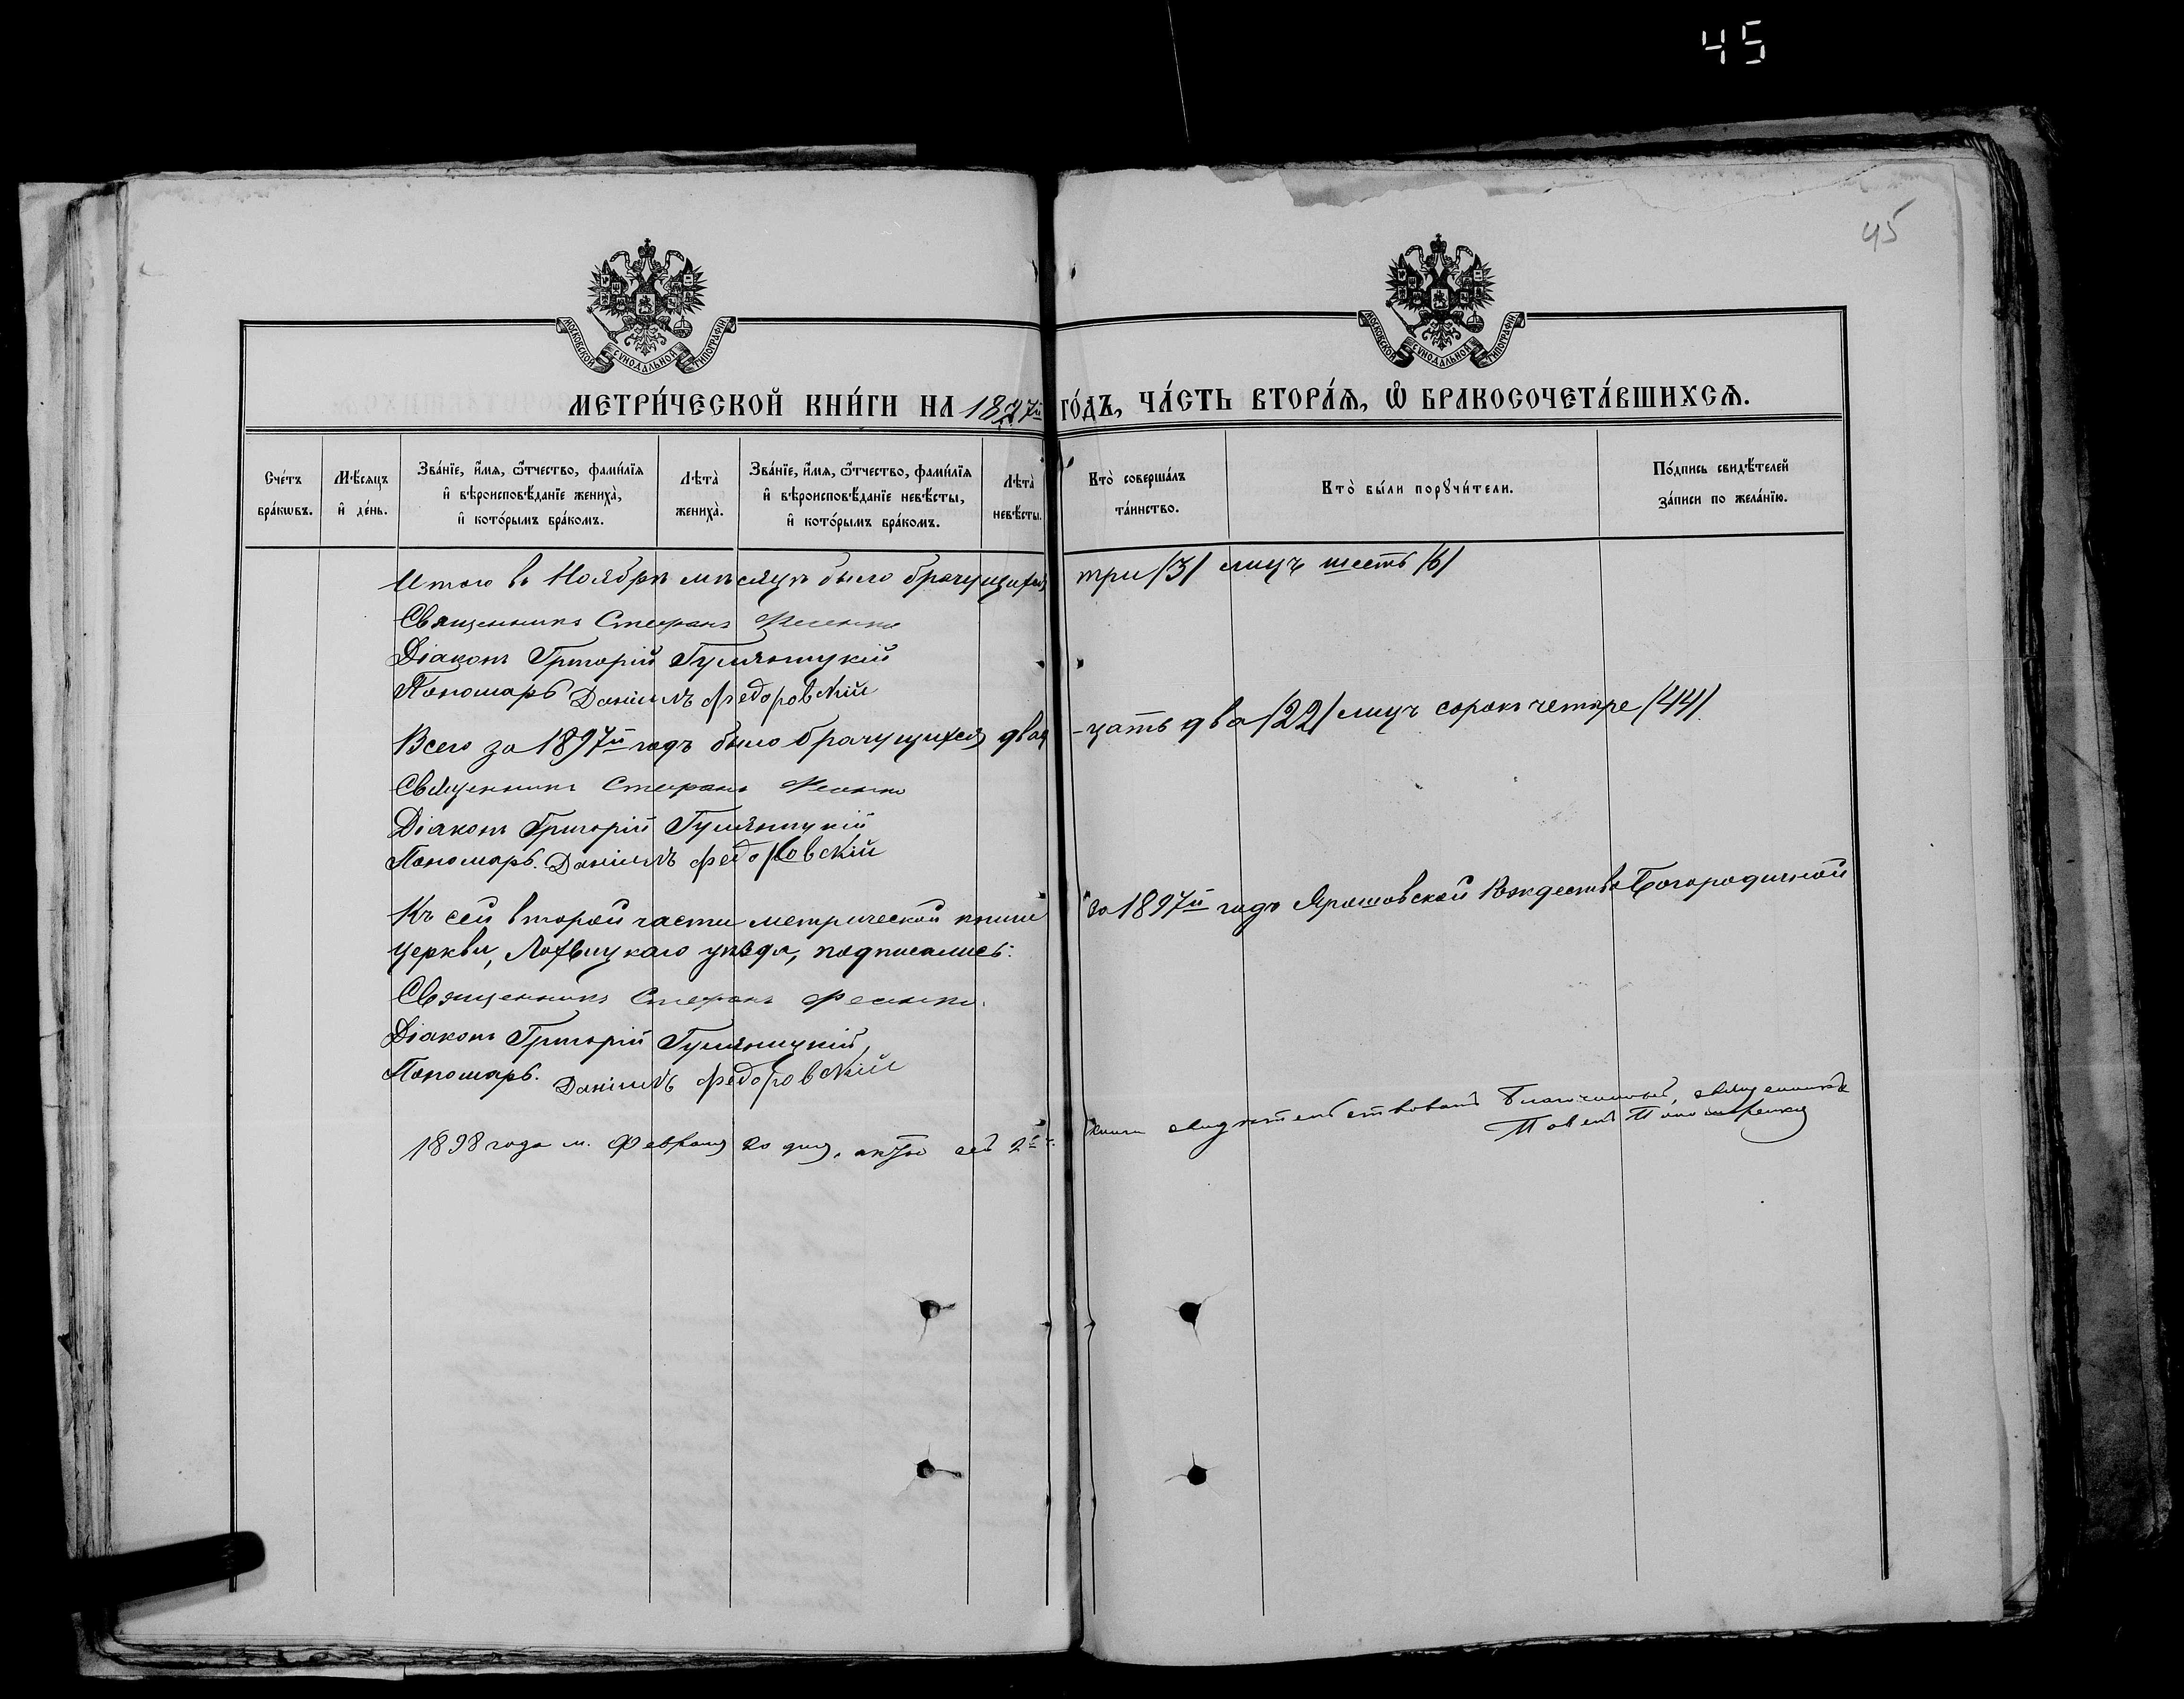 45
45
МОСКОВСКОЙ СУНОДАЛЬНОЙ ТИПОГРАФІИ
МОСКОВСКОЙ СУНОДАЛЬНОЙ ТИПОГРАФІИ
МЕТРИ́ЧЕСКОЙ КНИ́ГИ НА 1897й ГО́ДЪ, ЧА́СТЬ ВТОРА́Я, Ѡ БРАКОСОЧЕТА́ВШИХСЯ.
Сче́тъ бра́кѡвъ.
Мѣ́сяцъ и де́нь.
Зва́нїе, и́мя, ѻ҆́тчество, фами́лїя и вѣроисповѣ́данїе жениха̀, и кото́рымъ бра́комъ.
Лѣта̀ жениха̀.
Зва́нїе, и́мя, ѻ҆́тчество, фами́лїя и вѣроисповѣ́данїе невѣ́сты, и кото́рымъ бра́комъ.
Лѣта̀ невѣ́сты.
Кто̀ соверша́лъ та́инство.
Кто̀ бы́ли порꙋчи́тели.
По́дпись свидѣ́телей за́писи по жела́нїю.
Итого въ Ноябрѣ мѣсяцѣ было брачущихся три /3/ лицъ шесть /6/
Священникъ Стефанъ Фесенко
Діаконъ Григорій Гуляницкій
Пономарь Даніилъ Федоровскій
Всего за 1897й годъ было брачущихся двад-цать два /22/ лицъ сорокъ четыре /44/.
Священникъ Стефанъ Фесенко
Діаконъ Григорій Гуляницкій
Пономарь. Даніилъ Федоровскій
Къ сей второй части метрической книги за 1897й годъ Ярошовской Рождество Богородичной
церкви, Лохвицкаго уѣзда, подписались:
Священникъ Стефанъ Фесенко.
Діаконъ Григорій Гуляницкій,
Пономарь. Даніилъ Федоровскій
1898 года м. Февраля 20 дня, сей 2й ч. книги свидѣтельствовалъ Благочинный, священникъ
Павелъ Пономаренко